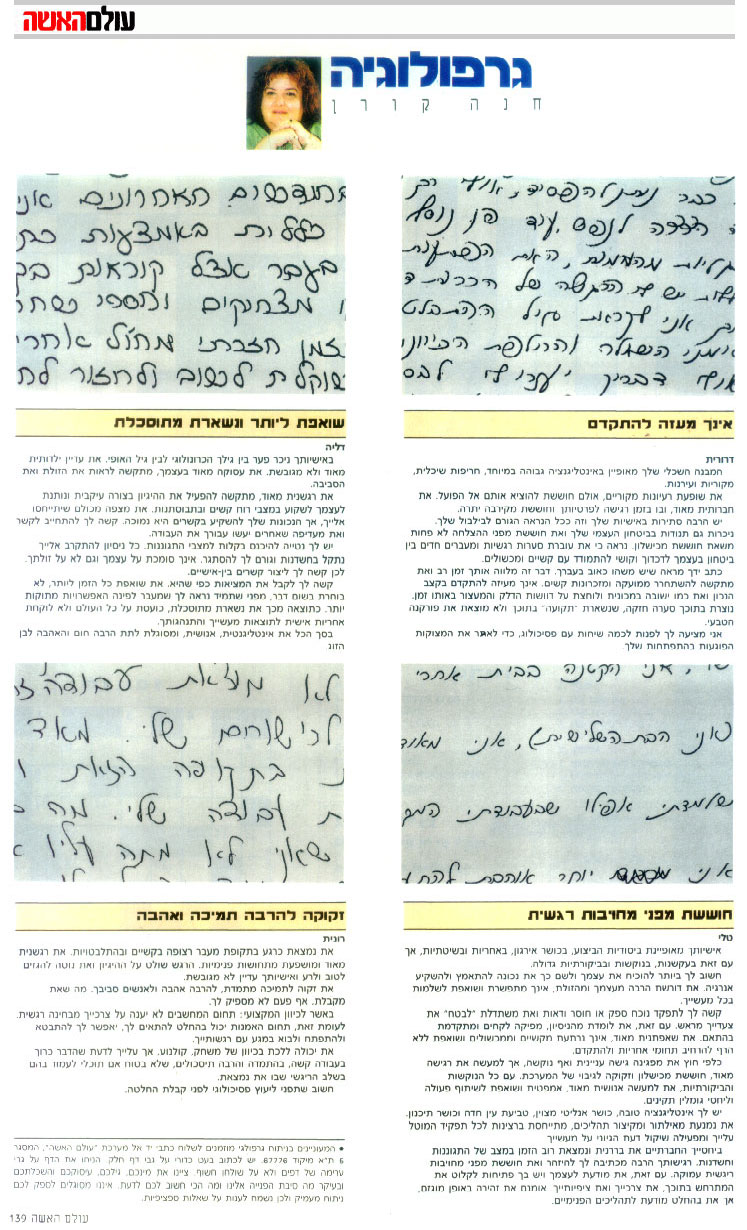 עולם האשה
גרפולוגיה
חנה קורן
כבר ניתן להפסיד,
לנפש, עוד
מהאמנות, האת
של
אני לקראת גיל
השאלה
דבריך
אינך מעזה להתקדם
דרורית
המבנה השכלי שלך מאופיין באינטליגנציה גבוהה במיוחד, חריפות שיכלית,
מקוריות ועירנות.
את שופעת רעיונות מקוריים, אולם חוששת להוציא אותם אל הפועל. את
חברותית מאוד, ובו בזמן רגישה לפרטיותך וחוששת מקירבה יתרה.
יש הרבה סתירות באישיות שלך וזה ככל הנראה הגורם לבילבול שלך.
ניכרות גם תנודות בביטחון העצמי שלך ואת חוששת מפני ההצלחה לא פחות
משאת חוששת מכישלון. נראה כי את עוברת סערות רגשיות ומעברים חדים בין
ביטחון בעצמך לדכדוך וקושי להתמודד עם קשיים ומכשולים.
כתב ידך מראה שיש משהו כאוב בעברך. דבר זה מלווה אותך זמן רב ואת
מתקשה להשתחרר ממועקה ומזכרונות קשים. אינך מעיזה להתקדם בקצב
הנכון ואת כמו ישובה במכונית ולוחצת על דוושות הדלק והמעצור באותו זמן.
נוצרת בתוכך סערה חזקה, שנשארת "תקועה" בתוכך ולא מוצאת את פורקנה
הטבעי.
אני מציעה לך לפנות לכמה שיחות עם פסיכולוג, כדי לאתר את המצוקות
הפוגעות בהתפתחות שלך.
האחרונים אני
כללית באמצעות
בעבר אצל קוראות
מצחיקים וחספי
זמן חזרתי מחו"ל
לשוב ולחזור
שואפת ליותר ונשארת מתוסכלת
דליה
באישיותך ניכר פער בין גילך הכרונולוגי לבין גיל האופי. את עדיין ילדותית
מאוד ולא מגובשת. את עסוקה מאוד בעצמך, מתקשה לראות את הזולת ואת
הסביבה.
את רגשנית מאוד, מתקשה להפעיל את ההיגיון בצורה עיקבית ונותנת
לעצמך לשקוע במצבי רוח קשים ובתבוסתנות. את מצפה מכולם שיתייחסו
אלייך, אך הנכונות שלך להשקיע בקשרים היא נמוכה. קשה לך להתחייב לקשר
ואת מעדיפה שאחרים יעשו עבורך את העבודה.
יש לך נטייה להיכנס בקלות למצבי התגוננות. כל ניסיון להתקרב אלייך
נתקל בחשדנות וגורם לך להסתגר. אינך סומכת על עצמך וגם לא על זולתך.
לכן קשה לך ליצור קשרים בין-אישיים.
קשה לך לקבל את המציאות כפי שהיא. את שואפת כל הזמן ליותר, לא
בוחרת בשום דבר, מפני שתמיד נראה לך שמעבר לפינה האפשרויות מתוקות
יותר. כתוצאה מכך את נשארת מתוסכלת, כועסת על כל העולם ולא לוקחת
אחריות אישית לתוצאות מעשייך והתנהגותך.
בסך הכל את אינטליגנטית, אנושית, ומסוגלת לתת הרבה חום ואהבה לבן
הזוג.
אני הקטנה בבית אחרי
אני הבת השלישית), אני מאוד
שלמדתי אפילו שבעבודתי
אני יותר אוהבת
חוששת מפני מחויבות רגשית
טלי
אישיותך מאופיינת ביסודיות הביצוע, בכושר אירגון, באחריות ובשיטתיות, אך
עם זאת בעקשנות, בנוקשות ובביקורתיות גדולה.
חשוב לך ביותר להוכיח את עצמך ולשם כך את נכונה להתאמץ ולהשקיע
אנרגיה. את דורשת הרבה מעצמך ומהזולת, אינך מתפשרת ושואפת לשלמות
בכל מעשייך.
קשה לך לתפקד נוכח ספק או חוסר ודאות ואת משתדלת "לבטח" את
צעדייך מראש. עם זאת, את לומדת מהניסיון, מפיקה לקחים ומתקדמת
בהתאם. את שאפתנית מאוד, אינך נרתעת מקשיים וממכשולים ושואפת ללא
הרף להרחיב תחומי אחריות ולהתקדם.
כלפי חוץ את מפגינה גישה עניינית ואף נוקשה, אך למעשה את רגישה
מאוד, חוששת מכישלון וזקוקה לגיבוי של המערכת. עם כל הנוקשות
והביקורתיות, את למעשה אנושית מאוד, אמפטית ושואפת לשיתוף פעולה
וליחסי גומלין תקינים.
יש לך אינטליגנציה טובה, כושר אנליטי מצוין, טביעת עין חדה וכושר תיכנון.
את נמנעת מאילתור ומקיצור תהליכים, מתייחסת ברצינות לכל תפקיד המוטל
עלייך ומפעילה שיקול דעת הגיוני על מעשייך.
ביחסייך החברתיים את בררנית ונמצאת רוב הזמן במצב של התגוננות
וחשדנות. רגישותך הרבה מכתיבה לך להיזהר ואת חוששת מפני מחויבות
רגשית עמוקה. עם זאת, את מודעת לעצמך ויש בך פתיחות לקלוט את
המתרחש בתוכך, את צרכייך ואת ציפיותייך. אומנם את זהירה באופן מוגזם,
אך את בהחלט מודעת לתהליכים הפנימיים.
לא מוצאת עבודה
לכישורים שלי. מאוד
בתקופה הזאת
עבודה שלי. מה
שאני לא
זקוקה להרבה תמיכה ואהבה
רונית
את נמצאת כרגע בתקופת מעבר רצופה בקשיים ובהתלבטויות. את רגשנית
מאוד ומושפעת מתחושות פנימיות. הרגש שולט על ההיגיון ואת נוטה להגזים
לטוב ולרע ואישיותך עדיין לא מגובשת.
את זקוקה לתמיכה מתמדת, להרבה אהבה ולאנשים סביבך. מה שאת
מקבלת, אף פעם לא מספיק לך.
באשר לכיוון המקצועי: תחום המחשבים לא יענה על צרכייך מבחינה רגשית.
לעומת זאת, תחום האמנות יכול בהחלט להתאים לך, יאפשר לך להתבטא
ולהתפתח ולבוא במגע עם רגשותייך.
את יכולה ללכת בכיוון של משחק, קולנוע. אך עלייך לדעת שהדבר כרוך
בעבודה קשה, בהתמדה והרבה תיסכולים, שלא בטוח אם תוכלי לעמוד בהם
בשלב הריגשי שבו את נמצאת.
חשוב שתפני ליעוץ פסיכולוגי לפני קבלת החלטה.
● המעוניינים בניתוח גרפולוגי מוזמנים לשלוח כתבי יד אל מערכת "עולם האשה", המסגר
5 ת"א מיקוד 67776. יש לכתוב בעט כדורי על גבי דף חלק. הניחו את הדף על גבי
ערימה של דפים ולא על שולחן חשוף. ציינו את מינכם, גילכם, עיסוקכם והשכלתכם
ובעיקר מה סיבת הפנייה אלינו ומה הכי חשוב לכם לדעת. איננו מסוגלים לספק לכם
ניתוח מעמיק ולכן נשמח לענות על שאלות ספציפיות.
עולם האשה 139